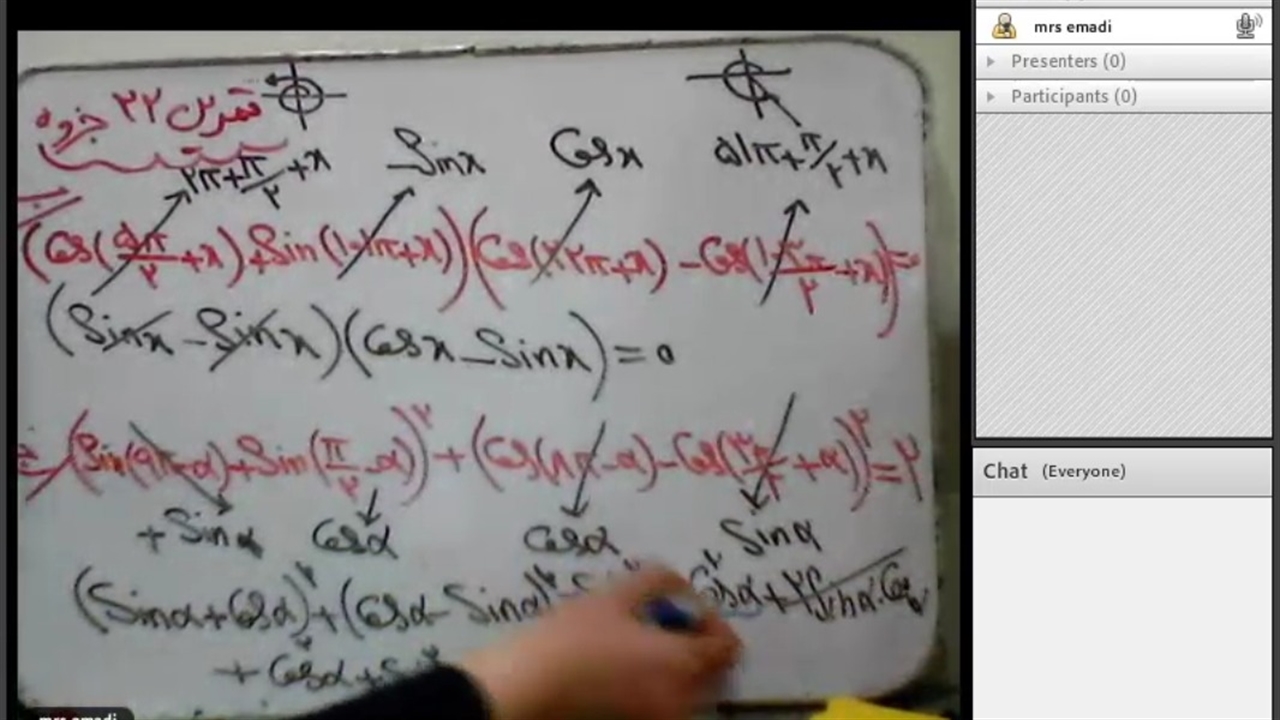 تمرین ۲۲ جزوه
۲π+π/۲+x -Sinx Cosx ۵۱π+π/۲+x
ب
(Cos(۵π/۲+x)+Sin(۱۰۱π+x))(Cos(۲۲π+x)-Cos(۱۰۳π/۲+x))=۰
(Sinx-Sinx)(Cosx-Sinx)=۰
(Sin(۹π-α)+Sin(π/۲-α))^۲+(Cos(۸π-α)-Cos(۳π/۲+α))^۲=۲
+Sinα Cosα Cosα Sinα
(Sinα+Cosα)^۲+(Cosα-Sinα)^۲ Cos^۲α+۲Sinα.Cosα
+Cos^۲α+
mrs emadi
Presenters (0)
Participants (0)
Chat (Everyone)
mrs emadi